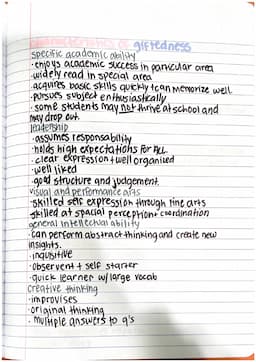 characteristics of giftedness
specific academic ability
· enjoys academic success in particular area
· widely read in special area
· acquires basic skills quickly + can memorize well
· pursues subject enthusiastically
· some students may not thrive at school and
may drop out.
leadership
· assumes responsability
· holds high expectations for ALL
· clear expression + well organised
· well liked
· good structure and judgement.
visual and performance arts
· skilled self expression through fine arts
skilled at spacial perception + coordination
general intellectual ability
· can perform abstract thinking and create new
insights.
· inquisitive
· observent + self starter
· quick learner w/ large vocab
creative thinking
· improvises
· original thinking
· multiple answers to q's